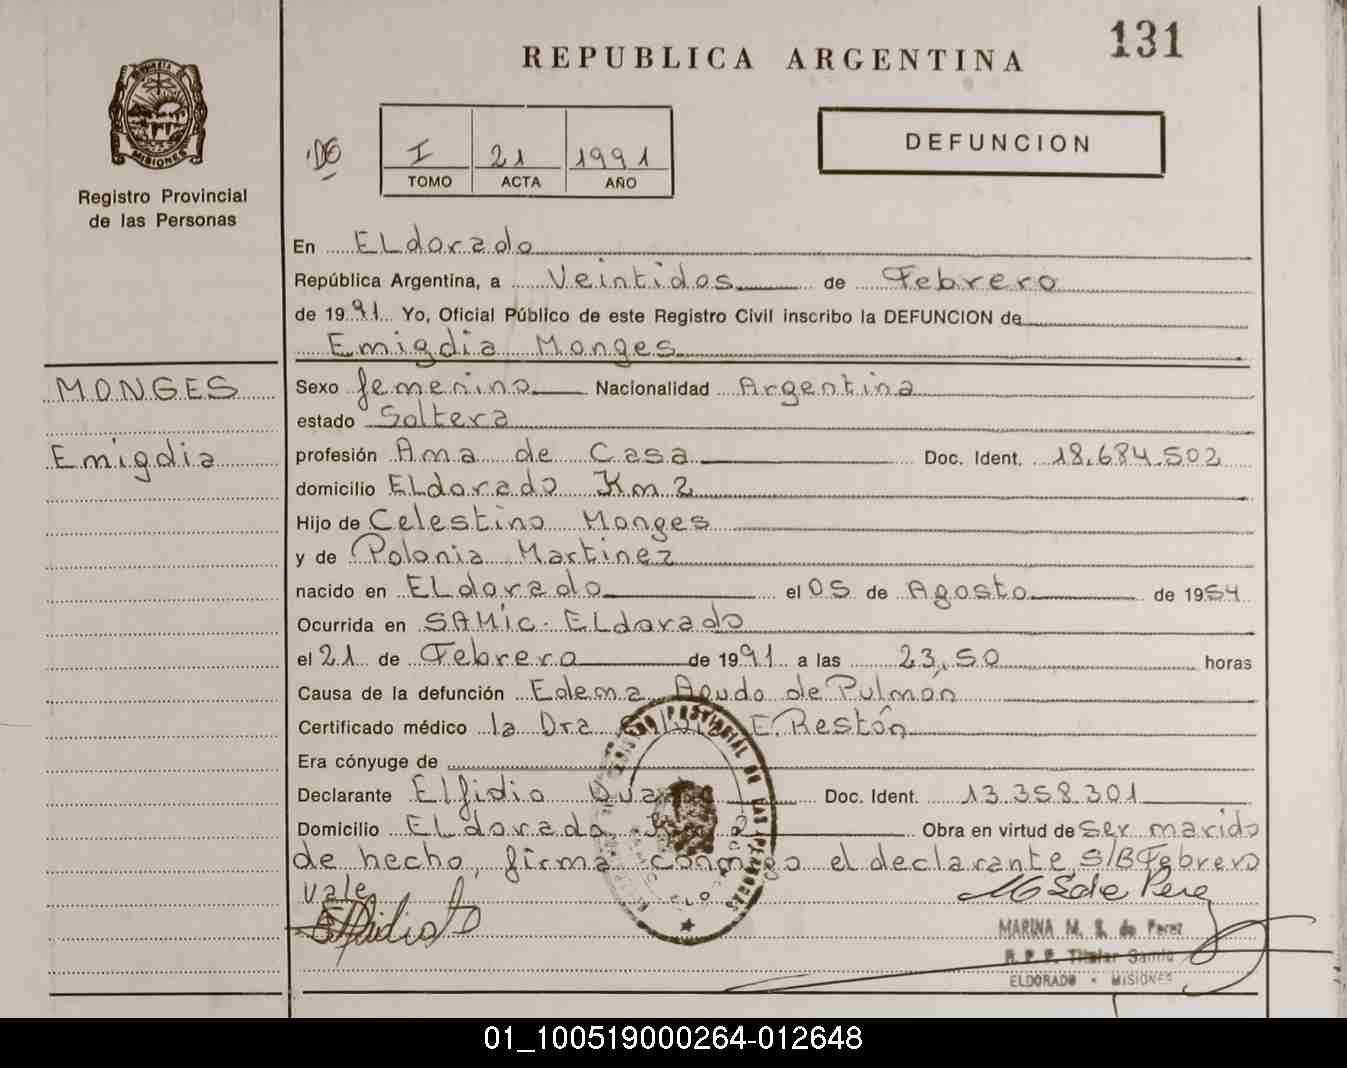 131
REPUBLICA ARGENTINA
MISIONES
Registro Provincial
de las Personas
DEFUNCION
I 21 1991
TOMO ACTA AÑO
En ELdorado
República Argentina, a Veintidos de Febrero
de 1991 Yo, Oficial Público de este Registro Civil inscribo la DEFUNCION de
Emigdia Monges
MONGES
Emigdia
Sexo femenino Nacionalidad Argentina
estado Soltera
profesión Ama de Casa Doc. Ident. 18.684.502
domicilio ELdorado Km 2
Hijo de Celestino Monges
y de Polonia Martinez
nacido en ELdorado el 05 de Agosto de 1954
Ocurrida en SAMic. ELdorado
el 21 de Febrero de 1991 a las 23,50 horas
Causa de la defunción Edema Agudo de Pulmón
Certificado médico la Dra E. Restón
Era cónyuge de
Declarante Elfidio Doc. Ident. 13.358.301
Domicilio ELdorado 2 Obra en virtud de Ser marido
de hecho, firma conmigo el declarante, S/B Febrero
Vale
MARINA M. S. de Perez
ELDORADO - MISIONES
01_100519000264-012648